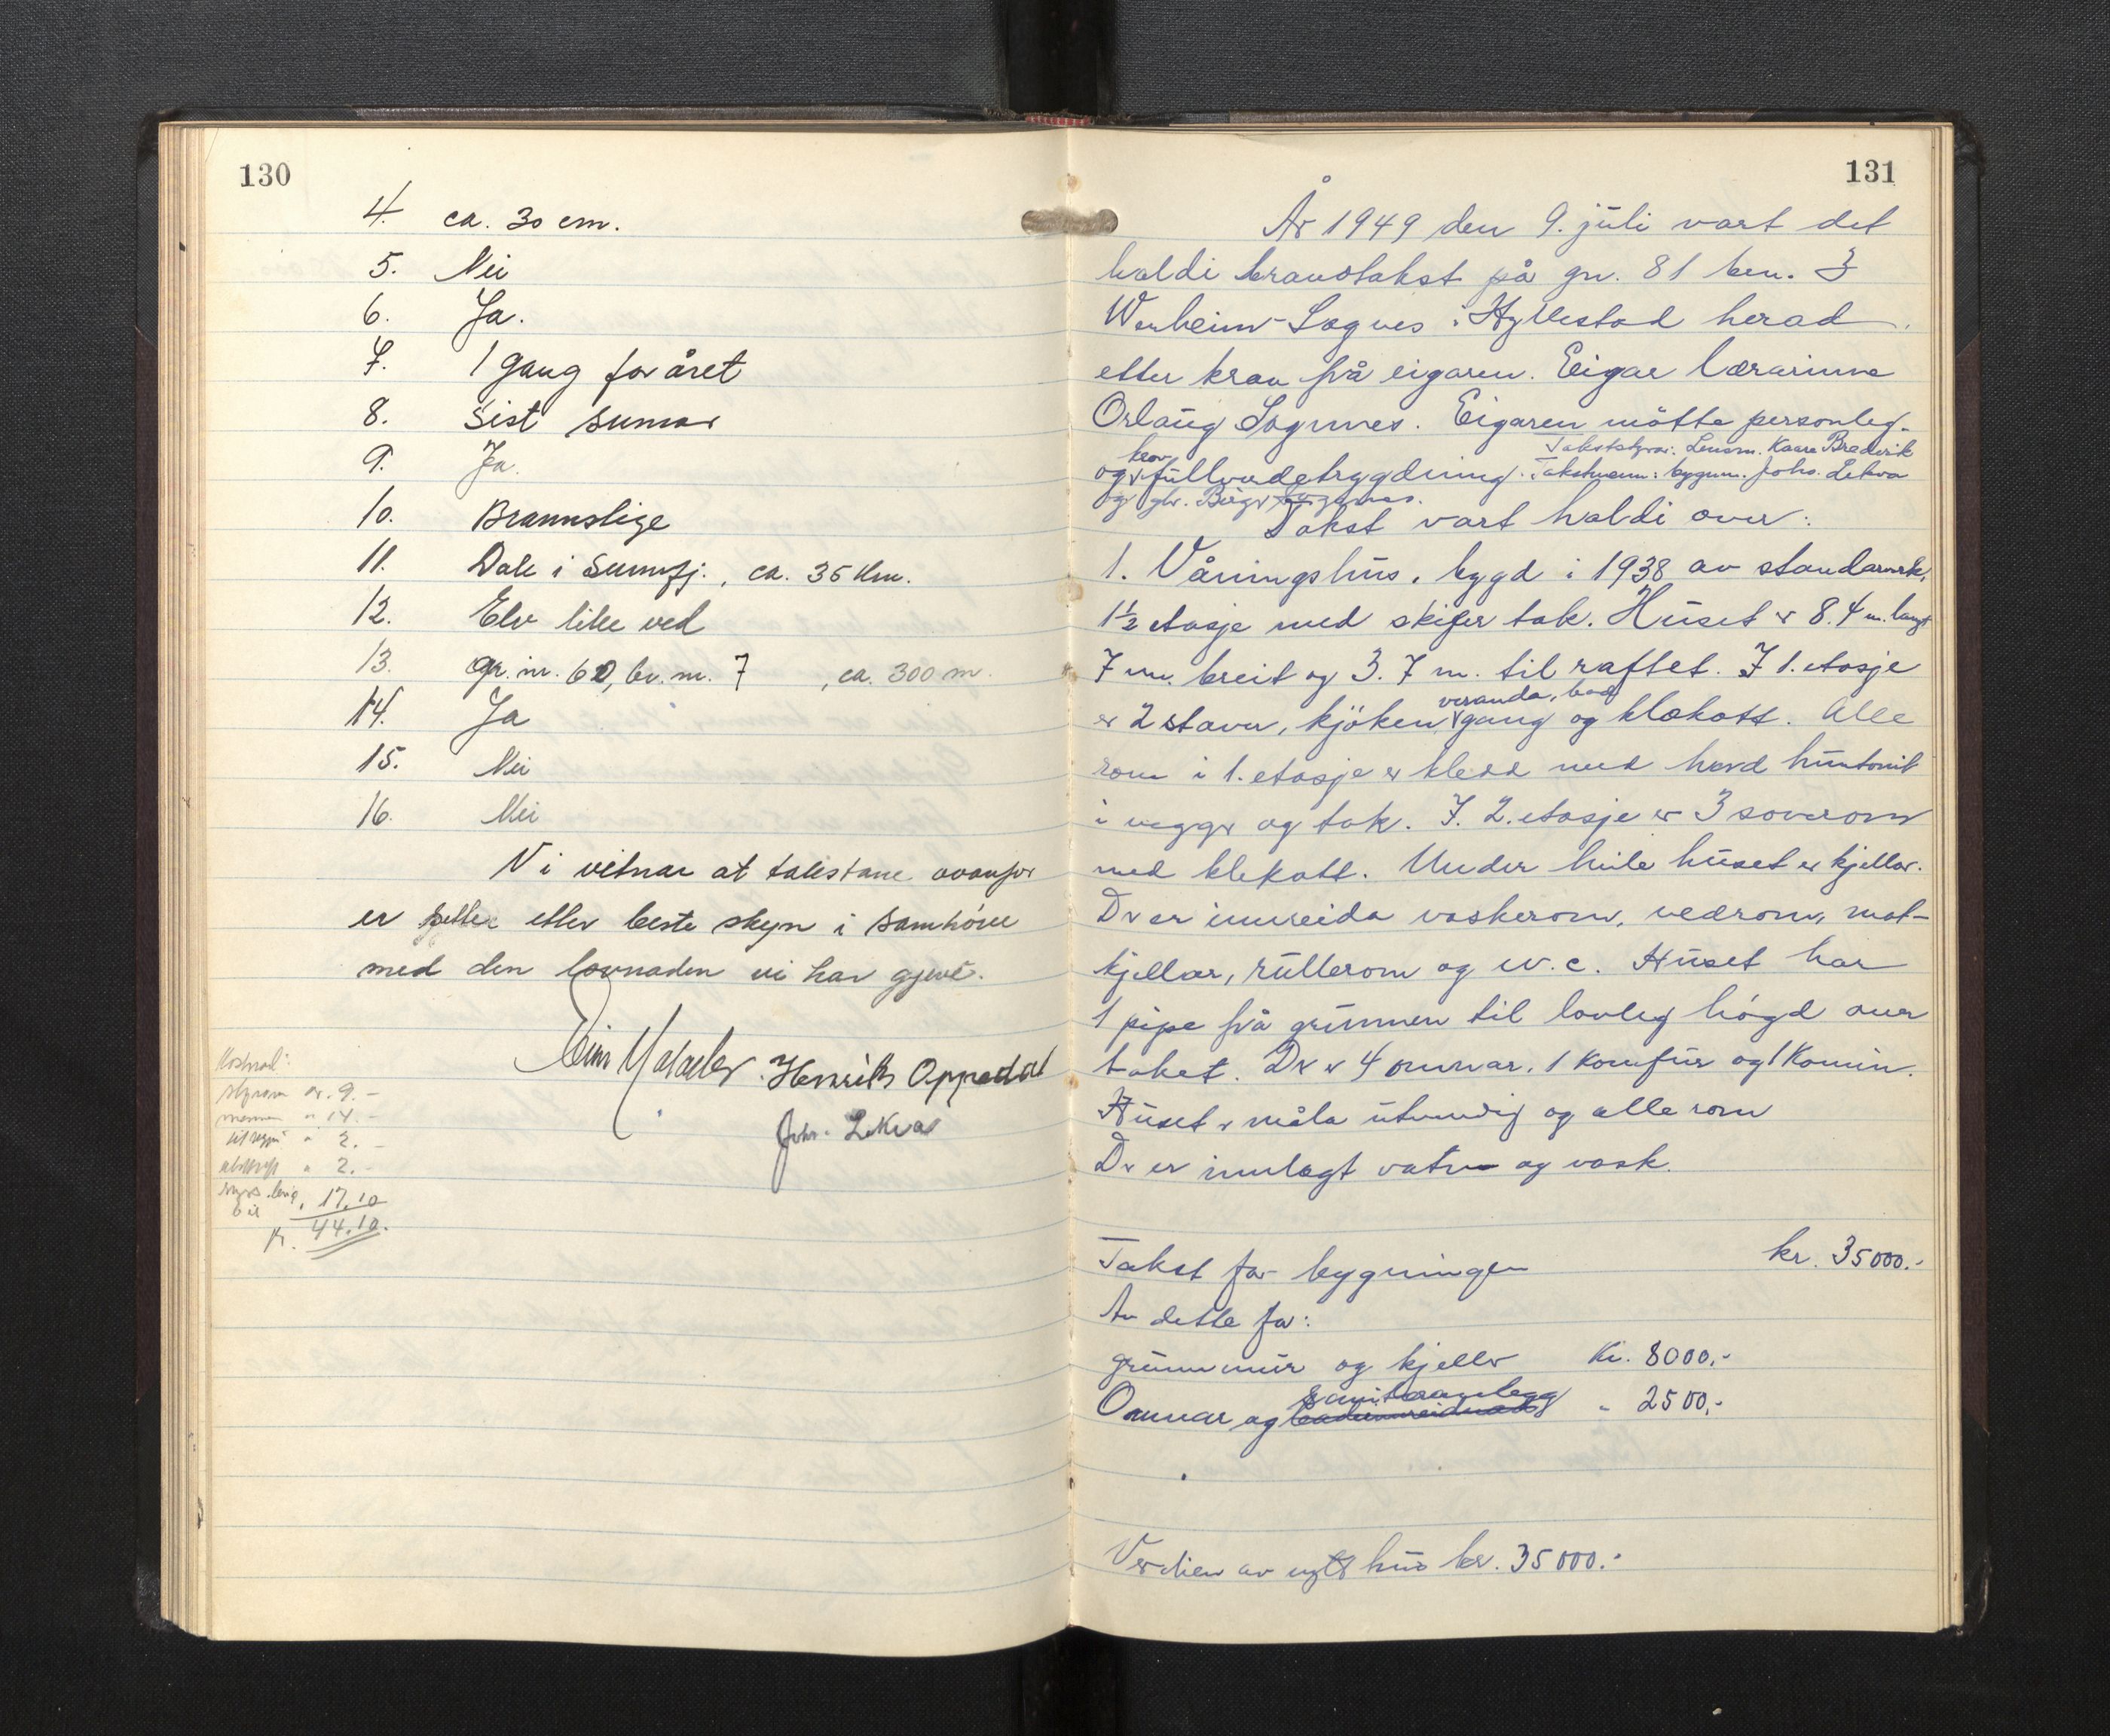 130
4. ca. 30 cm.
5. Nei
6. Ja.
7. 1 gang for året
8. Sist sumar
9. Ja.
10. Brannstige
11. Dale i Sunnfj., ca. 35 km.
12. Elv like ved
13. gr. nr. 60, br. nr. 7 , ca. 300 m.
14. Ja
15. Nei
16. Nei
Vi vitnar at takstane ovanfor
er sette etter beste skyn i samhöve
med den lovnaden vi har gjeve.
Henrik Oppedal
Johs. Lekva
Kostnad:
styraren kr. 9.-
mennene " 14.-
" 2.-
avskrift " 2.-
bil " 17.10
Kr. 44.10.
131
År 1949 den 9. juli vart det
haldi brandtakst på gn. 81 bn. 3
Sognes i Hyllestad herad.
etter krav frå eigaren. Eigar lærarinne
Orlaug Sognnes. Eigaren mötte personleg.
Takststyrar: Lensm. Kaare Brederik
krav
og fullverdetrygdning. Takstmenn: bygnm. Johs. Lekva
og gbr. Birger Sognnes.
Takst vart haldi over:
1. Våningshus, bygd i 1938 av standarverk,
1½ etasje med skifer tak. Huset er 8.4 m. langt
7 m. breit og 3.7 m. til raftet. I 1. etasje
veranda, bad
er 2 stover, kjöken, gang og klekott. Alle
rom i 1. etasje er kledd med hard huntonit
i vegger og tak. I 2. etasje er 3 soverom
med klekott. Under heile huset er kjellar.
Der er innreida vaskerom, vedrom, mat-
kjellar, rullerom og w.c. Huset har
1 pipe frå grunnen til lovleg högd over
taket. Der er 4 omnar, 1 komfur og 1 kamin.
Huset er måla utvendig og alle rom
Der er innlagt vatn og vask.
Takst for bygningen kr. 35000.-
Av dette for:
grunnmur og kjeller Kr. 8000,-
sanitæranlegg
Omnar og " 2500,-
Verdien av nytt hus kr. 35000.-